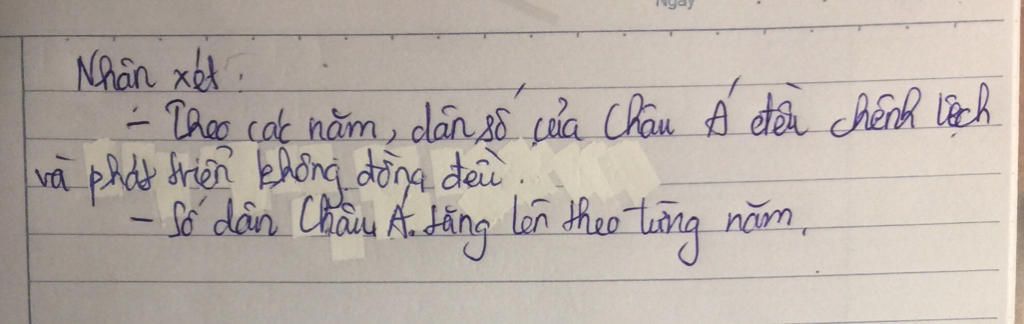 Ngày
Nhân xét:
- Theo các năm, dân số của Châu Á đều chênh lệch
và phát triển không đồng đều.
- Số dân Châu Á. tăng lên theo từng năm.